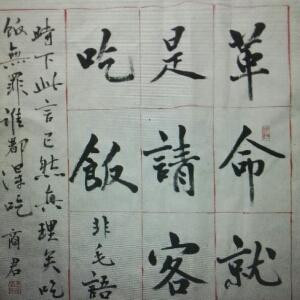 革命就
是請客
吃飯
非毛語
時下此言已然真理矣吃
飯無罪誰都深吃
商君